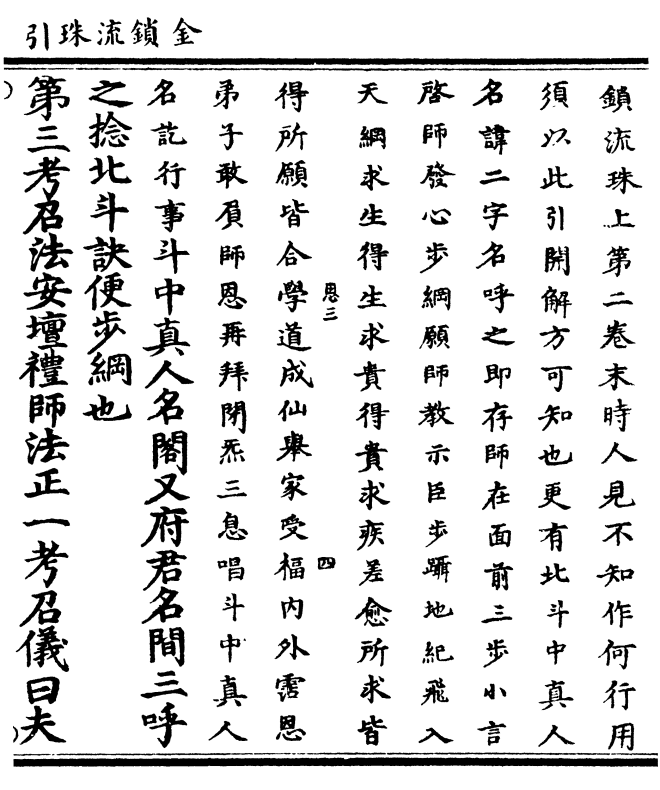 金鎖流珠引
鎖流珠上第二卷末時人見不知作何行用
須以此引開解方可知也更有北斗中真人
名諱二字名呼之即存師在面前三步小言
啓師發心步綱願師教示臣步躡地紀飛入
天綱求生得生求貴得貴求疾差愈所求皆
思三
四
得所願皆合學道成仙舉家受福內外霑恩
弟子敢負師恩再拜閉炁三息唱斗中真人
名訖行事斗中真人名閣又府君名間三呼
之捻北斗訣便步綱也
第三考召法安壇禮師法正一考召儀曰夫